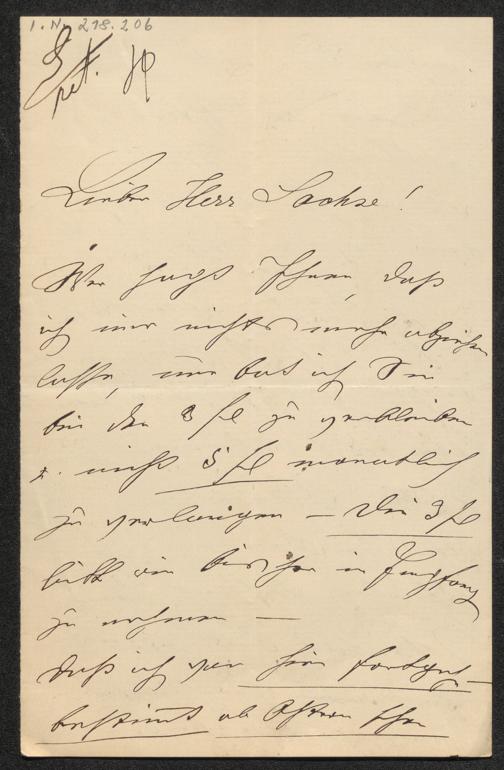 I.N. 218.206
Lieber Herr Sachse!
Wer sagt Ihnen, daß
ich mir nichts mehr abziehen
lasse, nur bat ich Sie
bei den 3 fl zu verbleiben
u. nicht 5 fl monatlich
zu verlangen – die 3 fl
bitte wie bisher in Empfang
zu nehmen –
daß ich von hier fortgeh
bestimmt ab Ostern